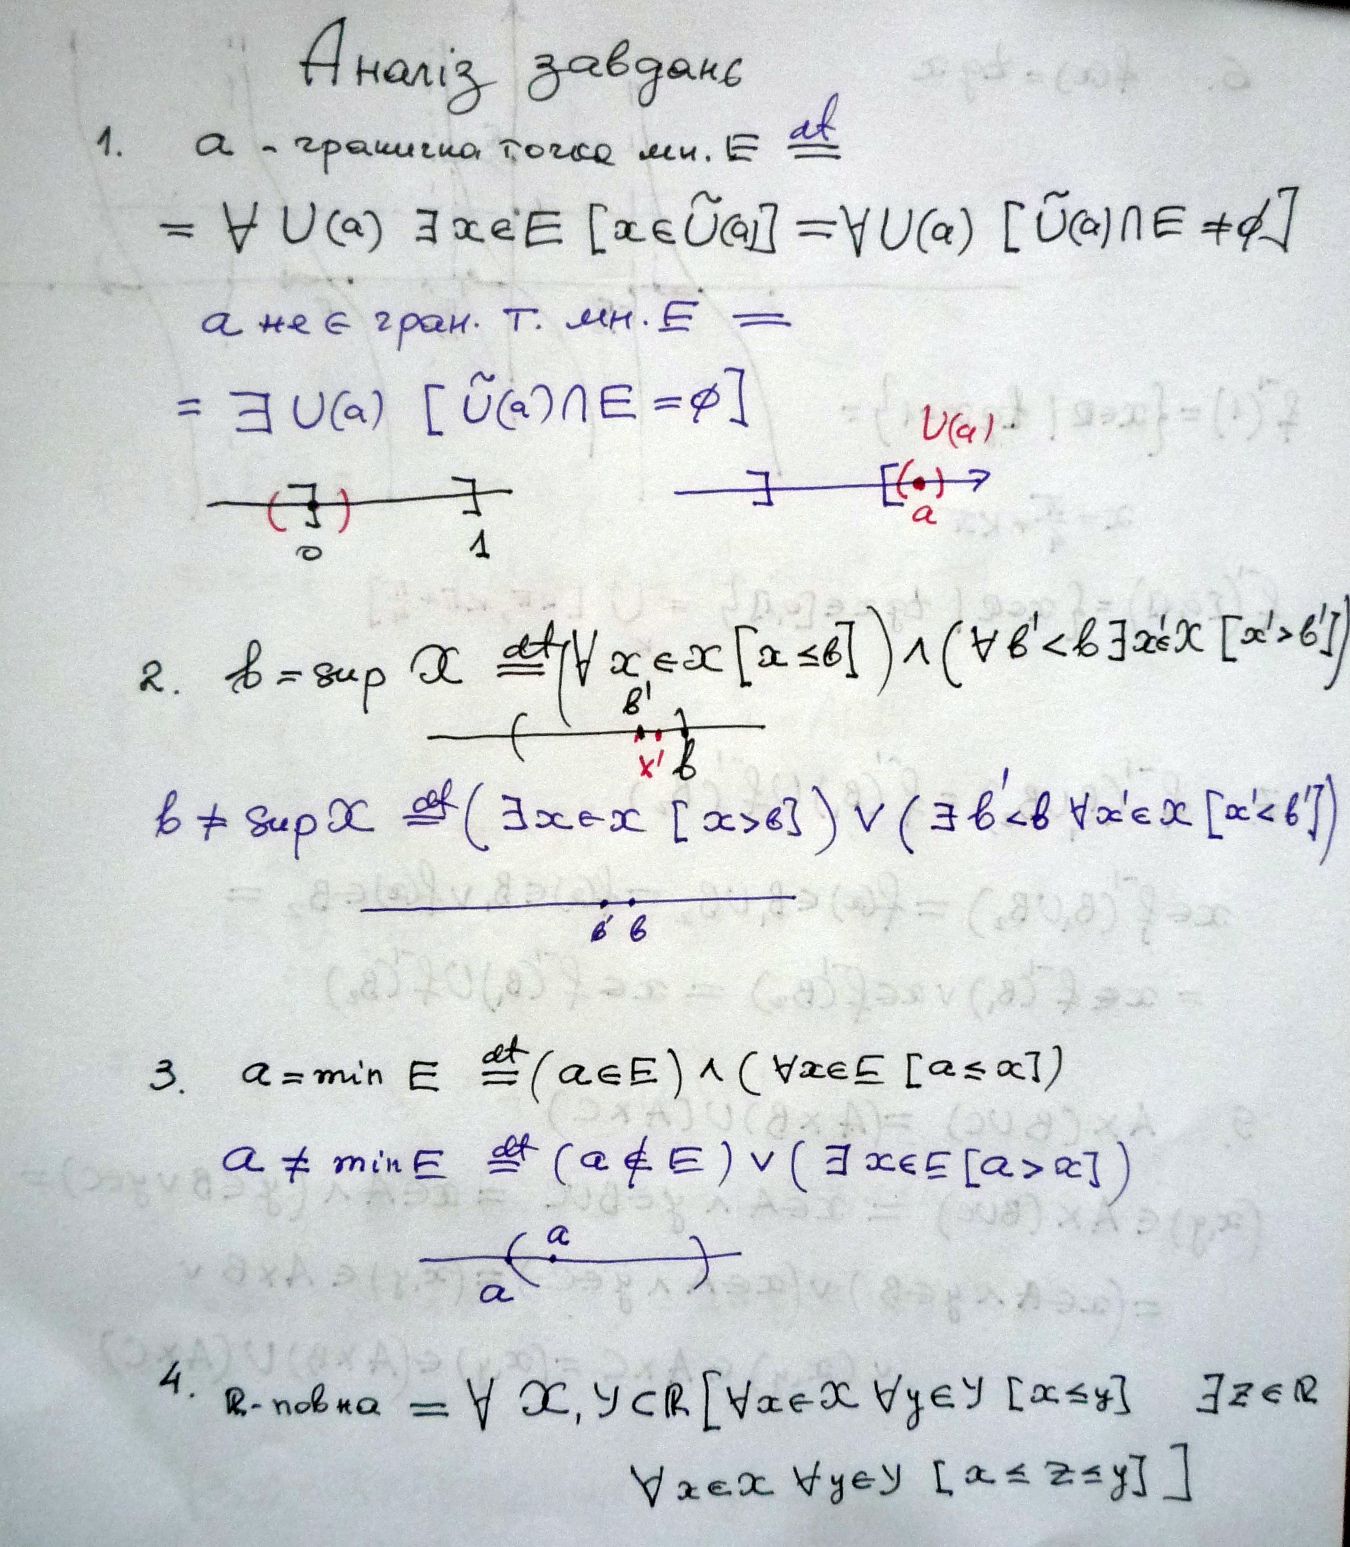 Аналіз завдань
1. a - гранична точка мн. E ≝
= ∀ U(a) ∃ x ∈ E [x ∈ Ũ(a)] = ∀ U(a) [Ũ(a) ∩ E ≠ ∅]
a не є гран. т. мн. E =
= ∃ U(a) [Ũ(a) ∩ E = ∅]
U(a)
a
0 1
2. b = sup X ≝ (∀ x ∈ X [x ≤ b]) ∧ (∀ b' < b ∃ x' ∈ X [x' > b'])
b'
x' b
b ≠ sup X ≝ (∃ x ∈ X [x > b]) ∨ (∃ b' < b ∀ x' ∈ X [x' < b'])
b' b
3. a = min E ≝ (a ∈ E) ∧ (∀ x ∈ E [a ≤ x])
a ≠ min E ≝ (a ∉ E) ∨ (∃ x ∈ E [a > x])
a
a
4. ℝ - повна = ∀ X, Y ⊂ ℝ [∀ x ∈ X ∀ y ∈ Y [x ≤ y] ∃ z ∈ ℝ
∀ x ∈ X ∀ y ∈ Y [x ≤ z ≤ y]]